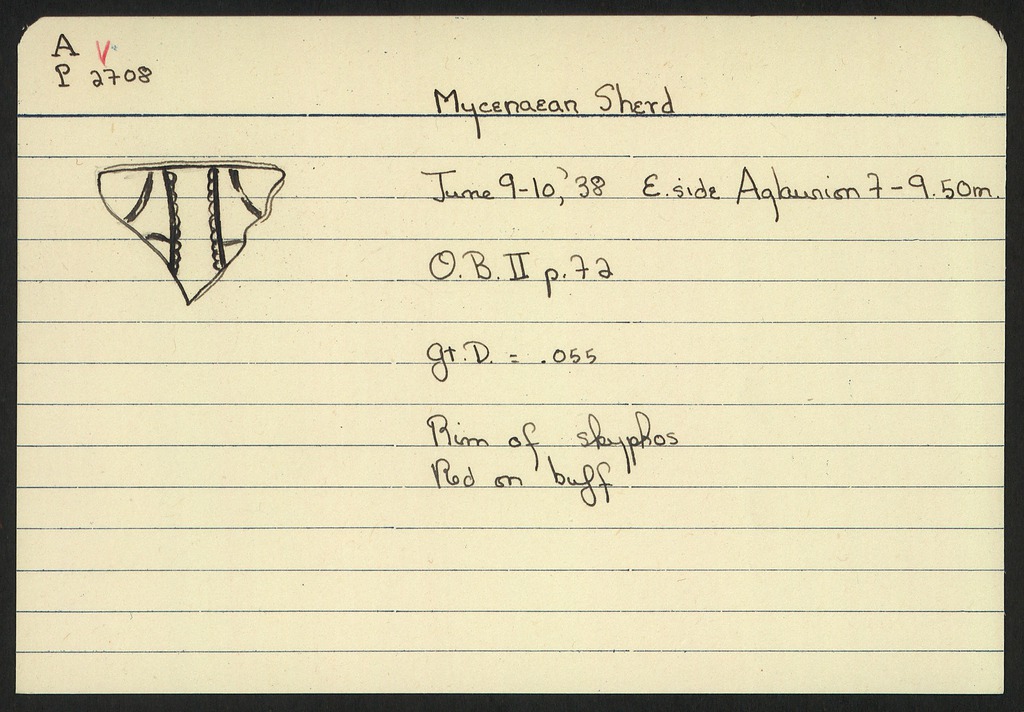 A
P 2708
Mycenaean Sherd
June 9-10, '38 E. side Aglaurion 7-9.50m.
O.B. II p.72
gt.D. = .055
Rim of skyphos
Red on buff